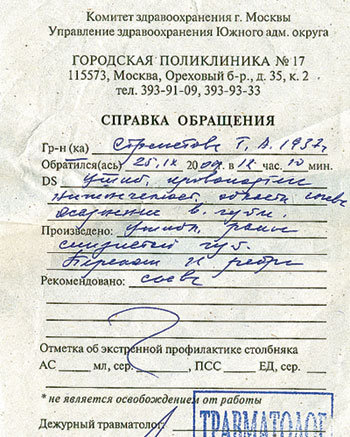 Комитет здравоохранения г. Москвы
Управление здравоохранения Южного адм. округа
ГОРОДСКАЯ ПОЛИКЛИНИКА № 17
115573, Москва, Ореховый б-р., д. 35, к. 2
тел. 393-91-09, 393-93-33
СПРАВКА ОБРАЩЕНИЯ
Гр-н (ка) Т. А. 1937г.
Обратился(ась) 25.IX 200 г. в час. 10 мин.
DS Ушиб,
области слева
в. губы.
Произведено: раны
слизистой губ.
Перелом ребра
Рекомендовано: слева
Отметка об экстренной профилактике столбняка
АС мл, сер. , ПСС ЕД, сер.
* не является освобождением от работы
Дежурный травматолог:
ТРАВМАТОЛОГ